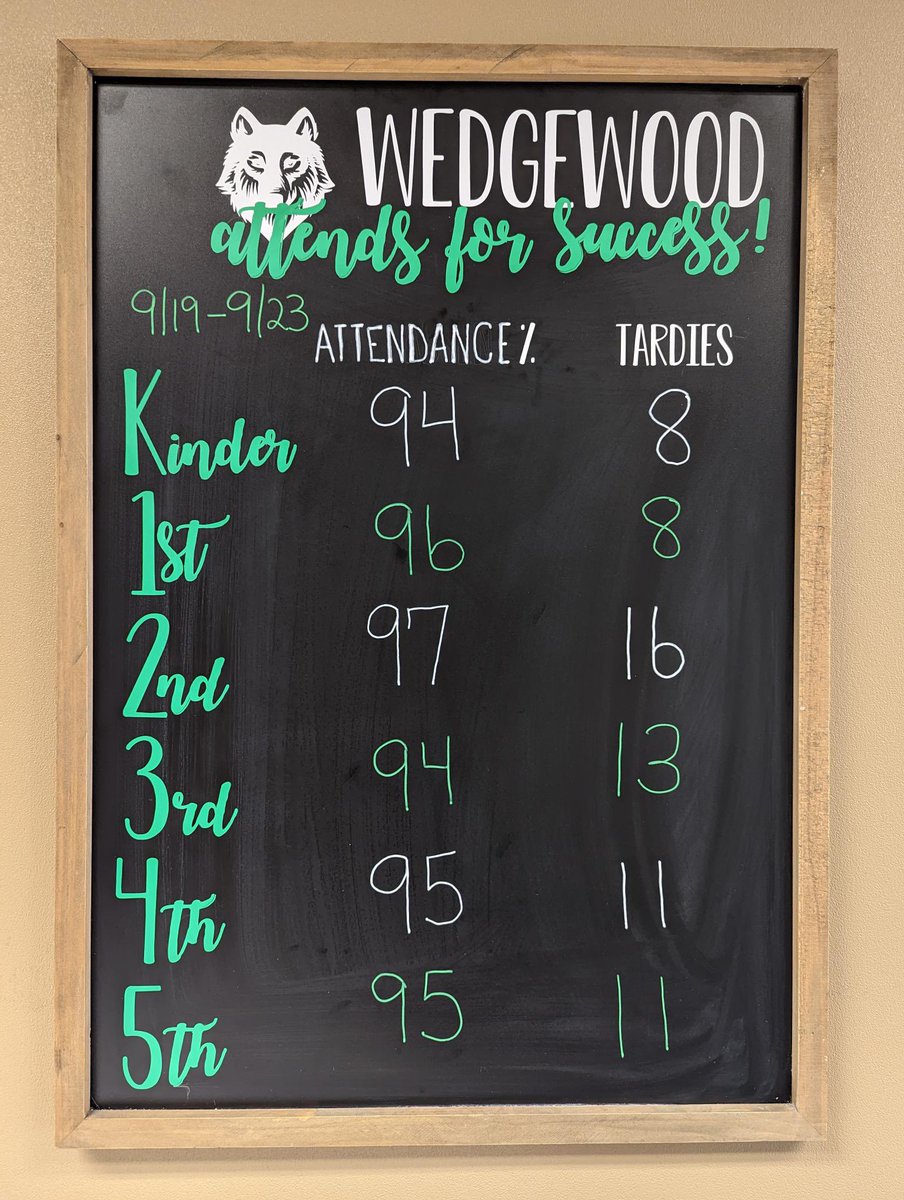 WEDGEWOOD
attends for success!
9/19-9/23
ATTENDANCE % TARDIES
Kinder 94 8
1st 96 8
2nd 97 16
3rd 94 13
4th 95 11
5th 95 11